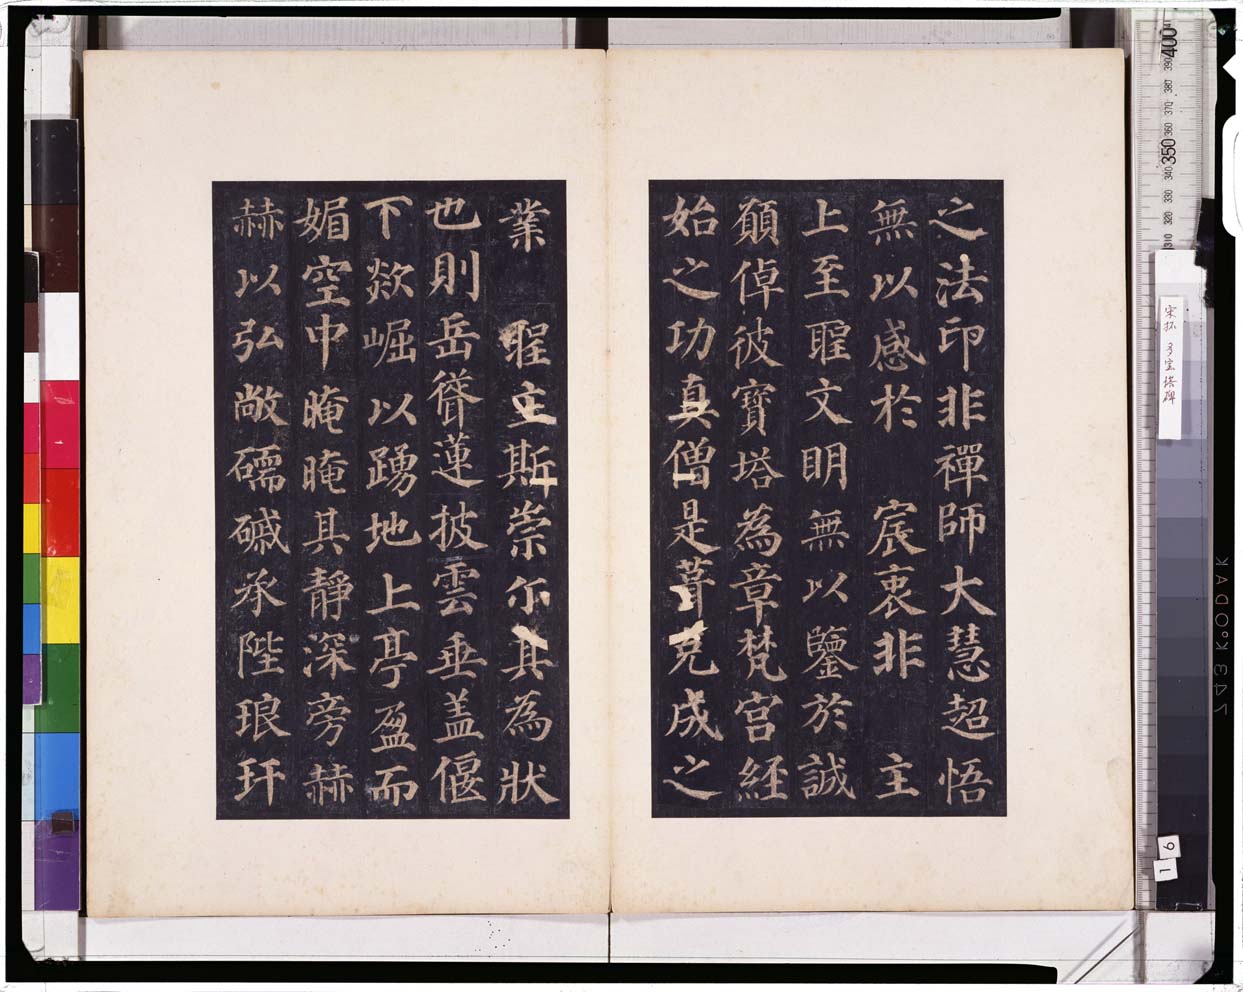 之法印非禪師大慧超悟
無以感於　宸衷非　主
上至聖文明無以鑒於誠
願倬彼寶塔為章梵宮経
始之功真僧是葺克成之
業　聖主斯崇尓其為狀
也則岳聳蓮披雲垂盖偃
下欻崛以踴地上亭盈而
媚空中晻晻其靜深旁赫
赫以弘敞礝磩承陛琅玕
宋拓多宝塔碑
16
310 320 330 340 350 360 370 380 390 400
743 KODAK